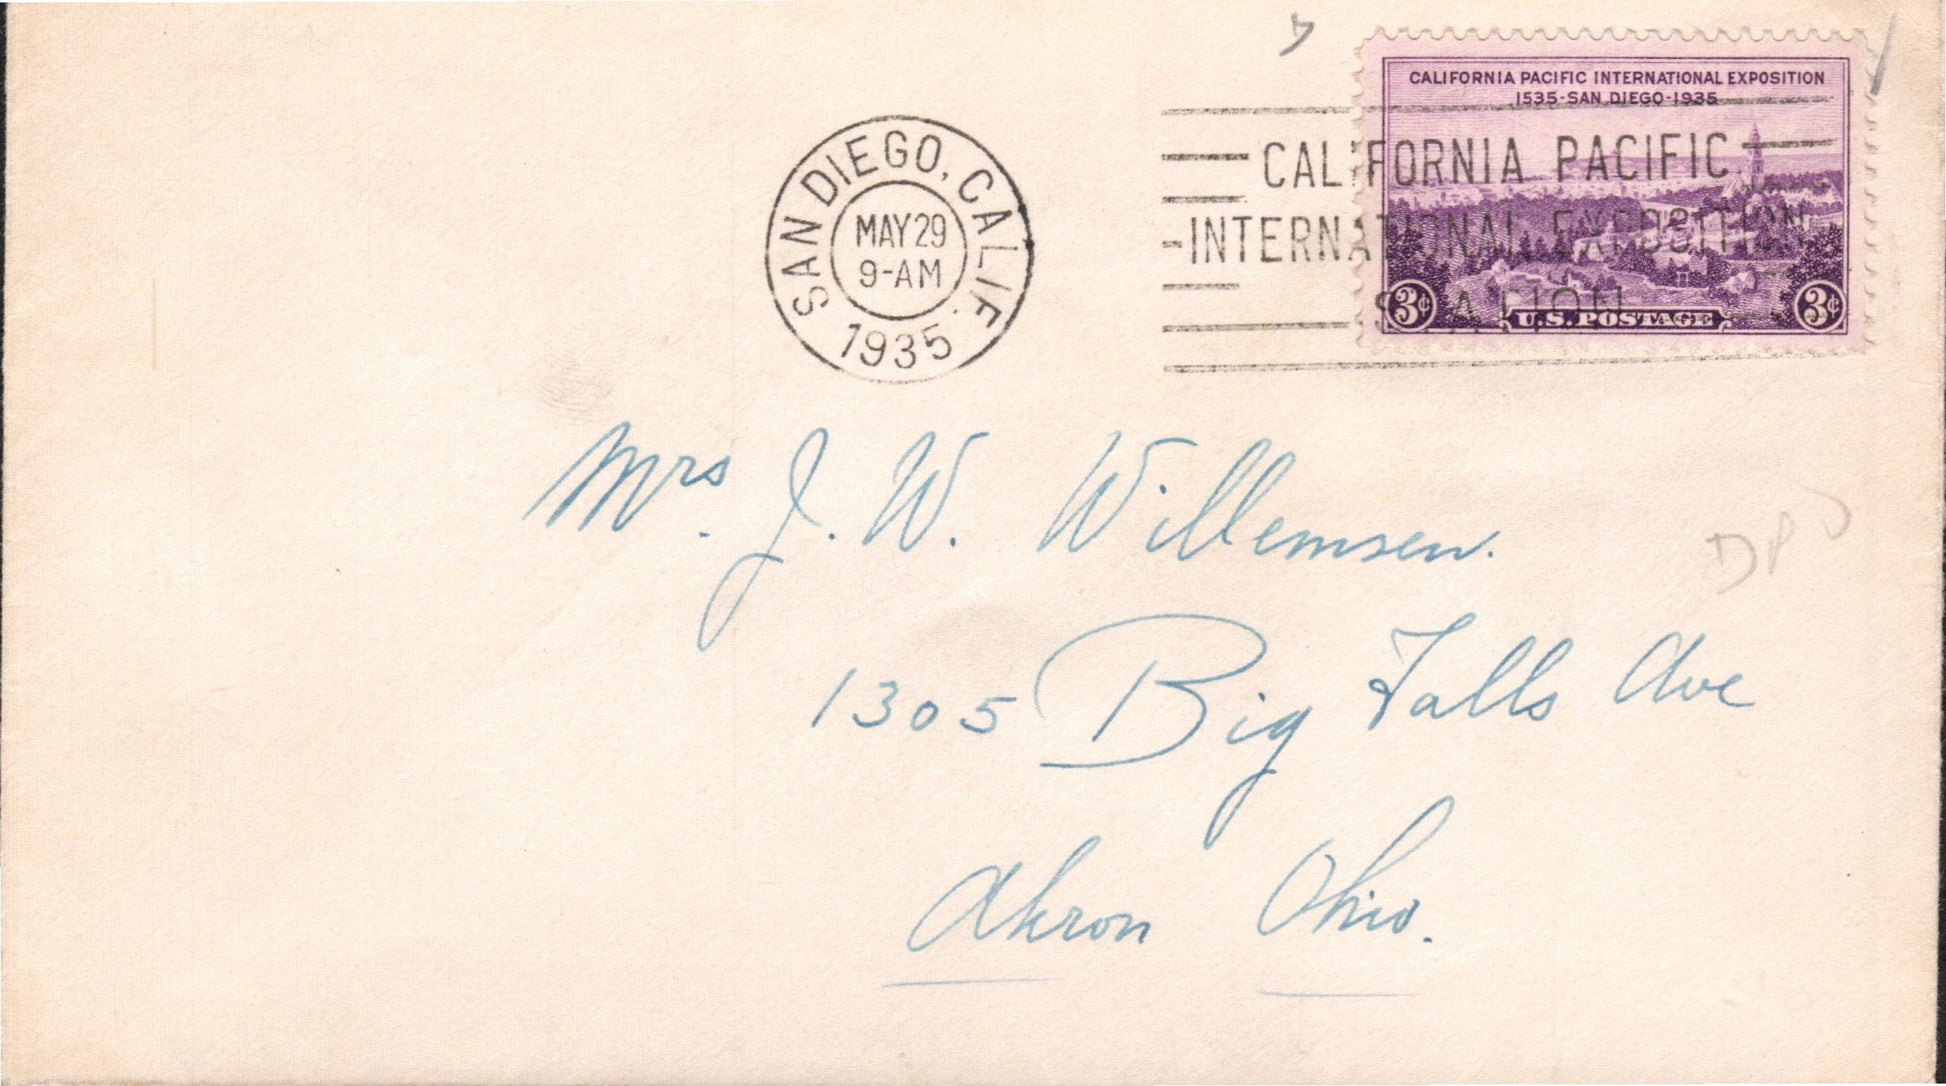 CALIFORNIA PACIFIC INTERNATIONAL EXPOSITION
1535-SAN DIEGO-1935
3¢ U.S. POSTAGE 3¢
SAN DIEGO, CALIF.
MAY 29
9-AM
1935
CALIFORNIA PACIFIC
INTERNATIONAL EXPOSITION
STATION
Mrs. J. W. Willemsen.
1305 Big Falls Ave
Akron Ohio.